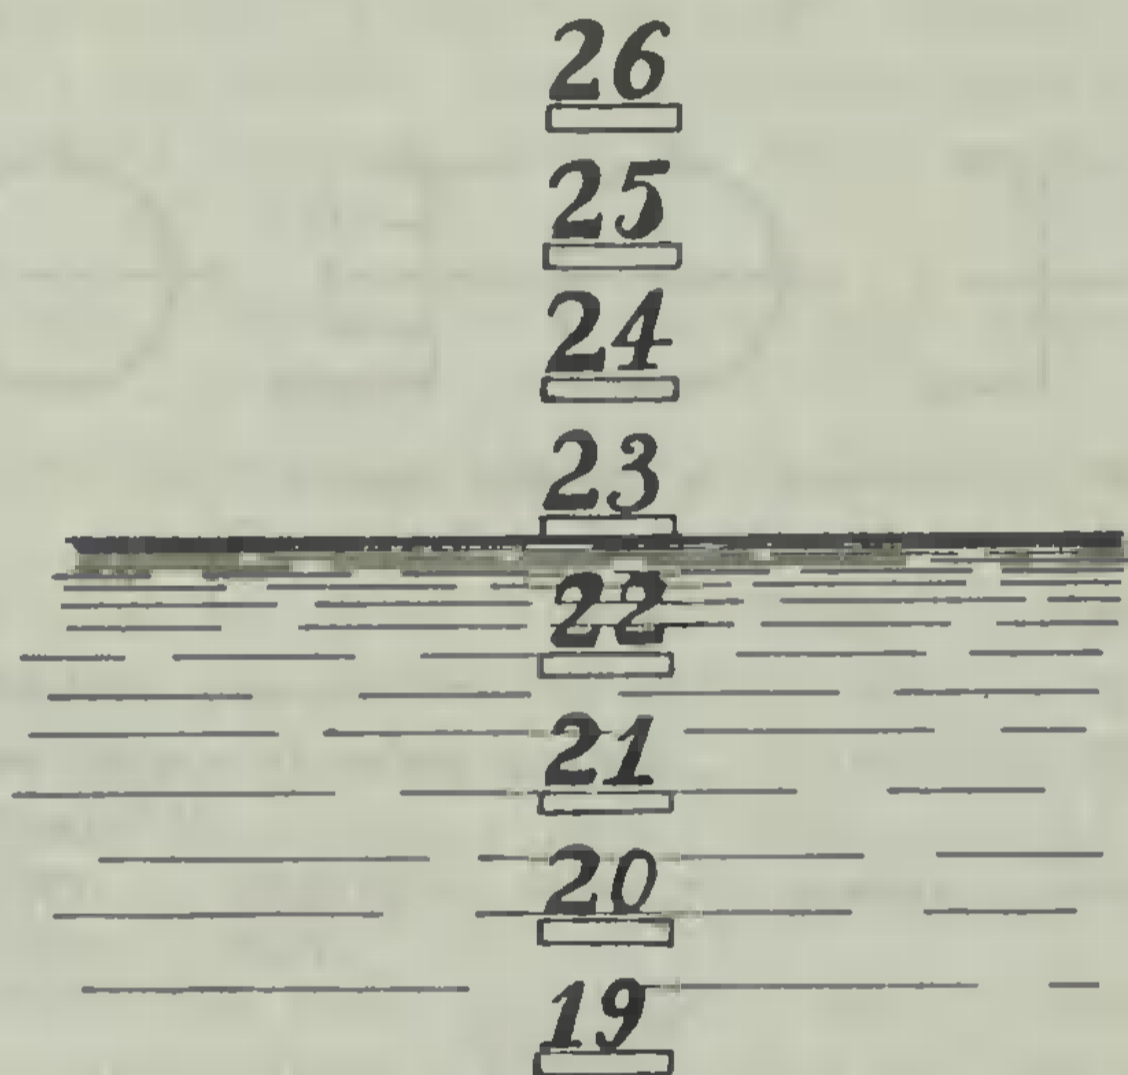 26
25
24
23
22
21
20
19